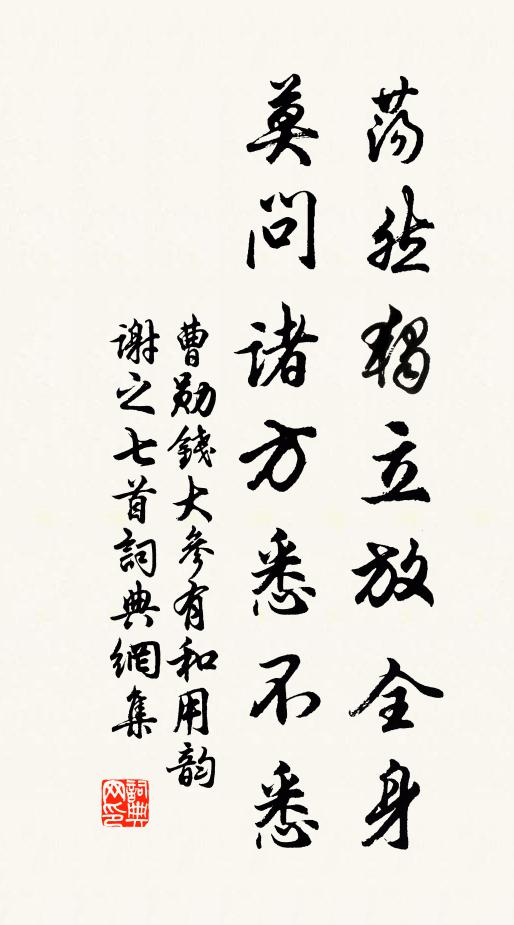 蕩然獨立放全身
莫問諸方悉不悉
曹勛錢大參有和用韵
謝之七首詞典網集
詞典
网印